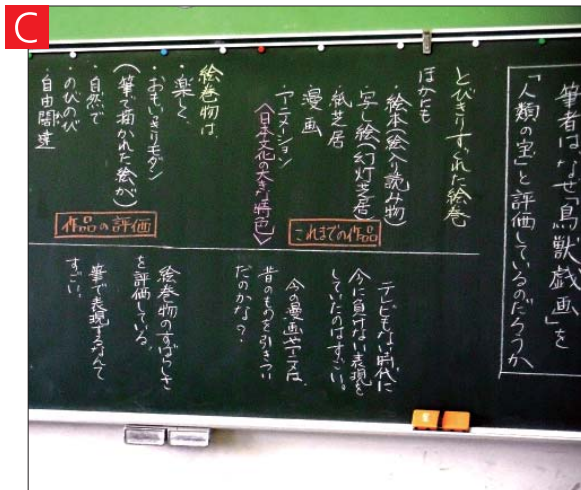 C
筆者はなぜ「鳥獣戯画」を
「人類の宝」と評価しているのだろうか
とびきりすぐれた絵巻
ほかにも
・絵本(絵入り読み物)
・写し絵(幻灯芝居)
・紙芝居
・漫画
・アニメーション
〈日本文化の大きな特色〉
これまでの作品
絵巻物は、
・楽しく
・おもいきりモダン
(筆で描かれた絵が)
・自然で
・のびのび
・自由闊達
作品の評価
テレビもない時代に
今に負けない表現を
していたのはすごい。
今の漫画やアニメは、
昔のものを引きつい
だのかな?
絵巻物のすばらしさ
を評価している。
筆で表現するなんて
すごい。